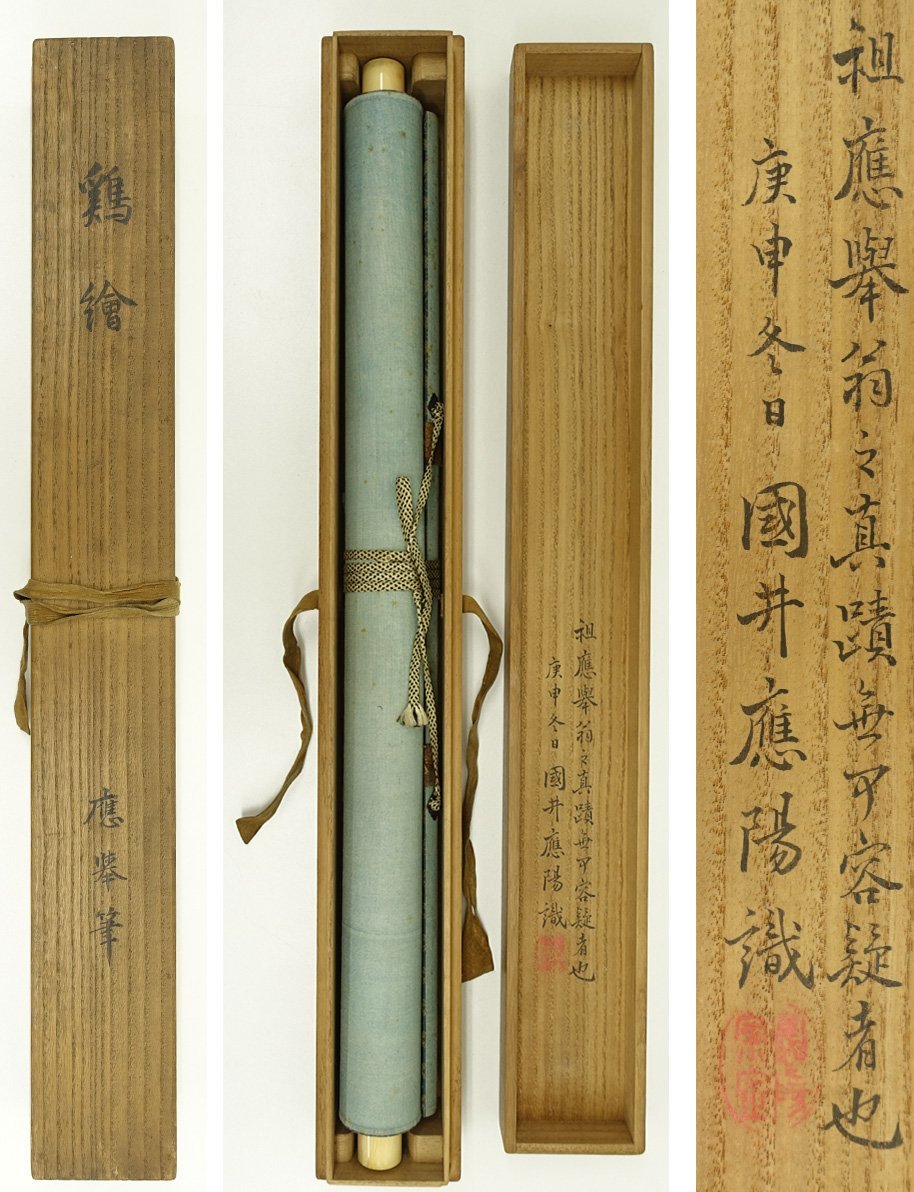 鶏繪
應擧筆
祖應擧翁之真蹟無可容疑者也
庚申冬日 國井應陽識
祖應擧翁之真蹟無可容疑者也
庚申冬日 國井應陽識